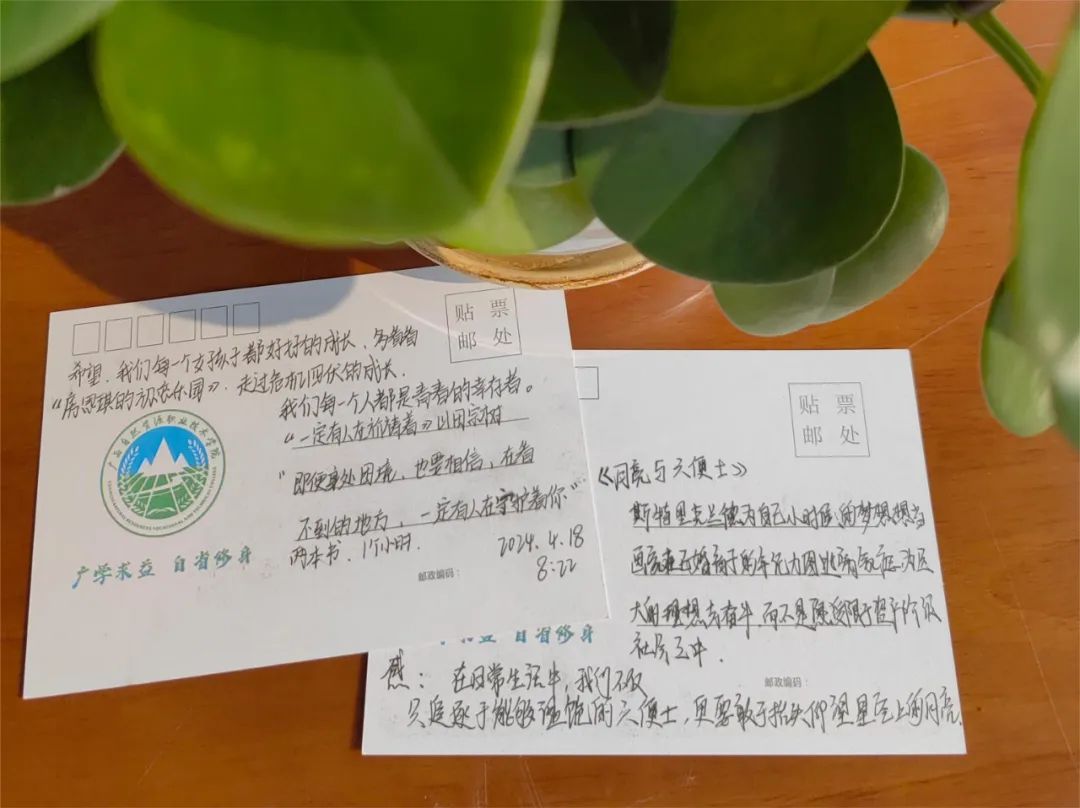 贴 票
邮 处
希望，我们每一个女孩子都好好的成长，多看看
《房思琪的初恋乐园》，走过危机四伏的成长．
我们每一个人都是青春的幸存者。
“一定有人在祈祷着》以田宗树
广西自然资源职业技术学院
“即便身处困境，也要相信，在看
不到的地方，一定有人在守护着你”
两本书．1个小时．
2024.4.18
8:22
广学求益 自省修身
邮政编码：
贴 票
邮 处
《月亮与六便士》
斯特里克兰德为自己小时候的梦想想当
画家
大的理想去奋斗，而不是
社会之中．
求益 自省修身
邮政编码：
感：在日常生活中，我们不仅
只追逐于能够温饱的六便士，更要敢于抬头仰望星空上的月亮．